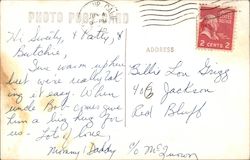 PHOTO POST CARD
Hi Swily, & Patty, &
Butchie
Sure warm up here
but were really tak
ing it easy. When
uncle Bob comes give
him a big hug for
us - Lots of love,
Mommy Daddy
ADDRESS
2 CENTS 2
Billie Lou Grigg
460 Jackson
Red Bluff
c/o McQuown